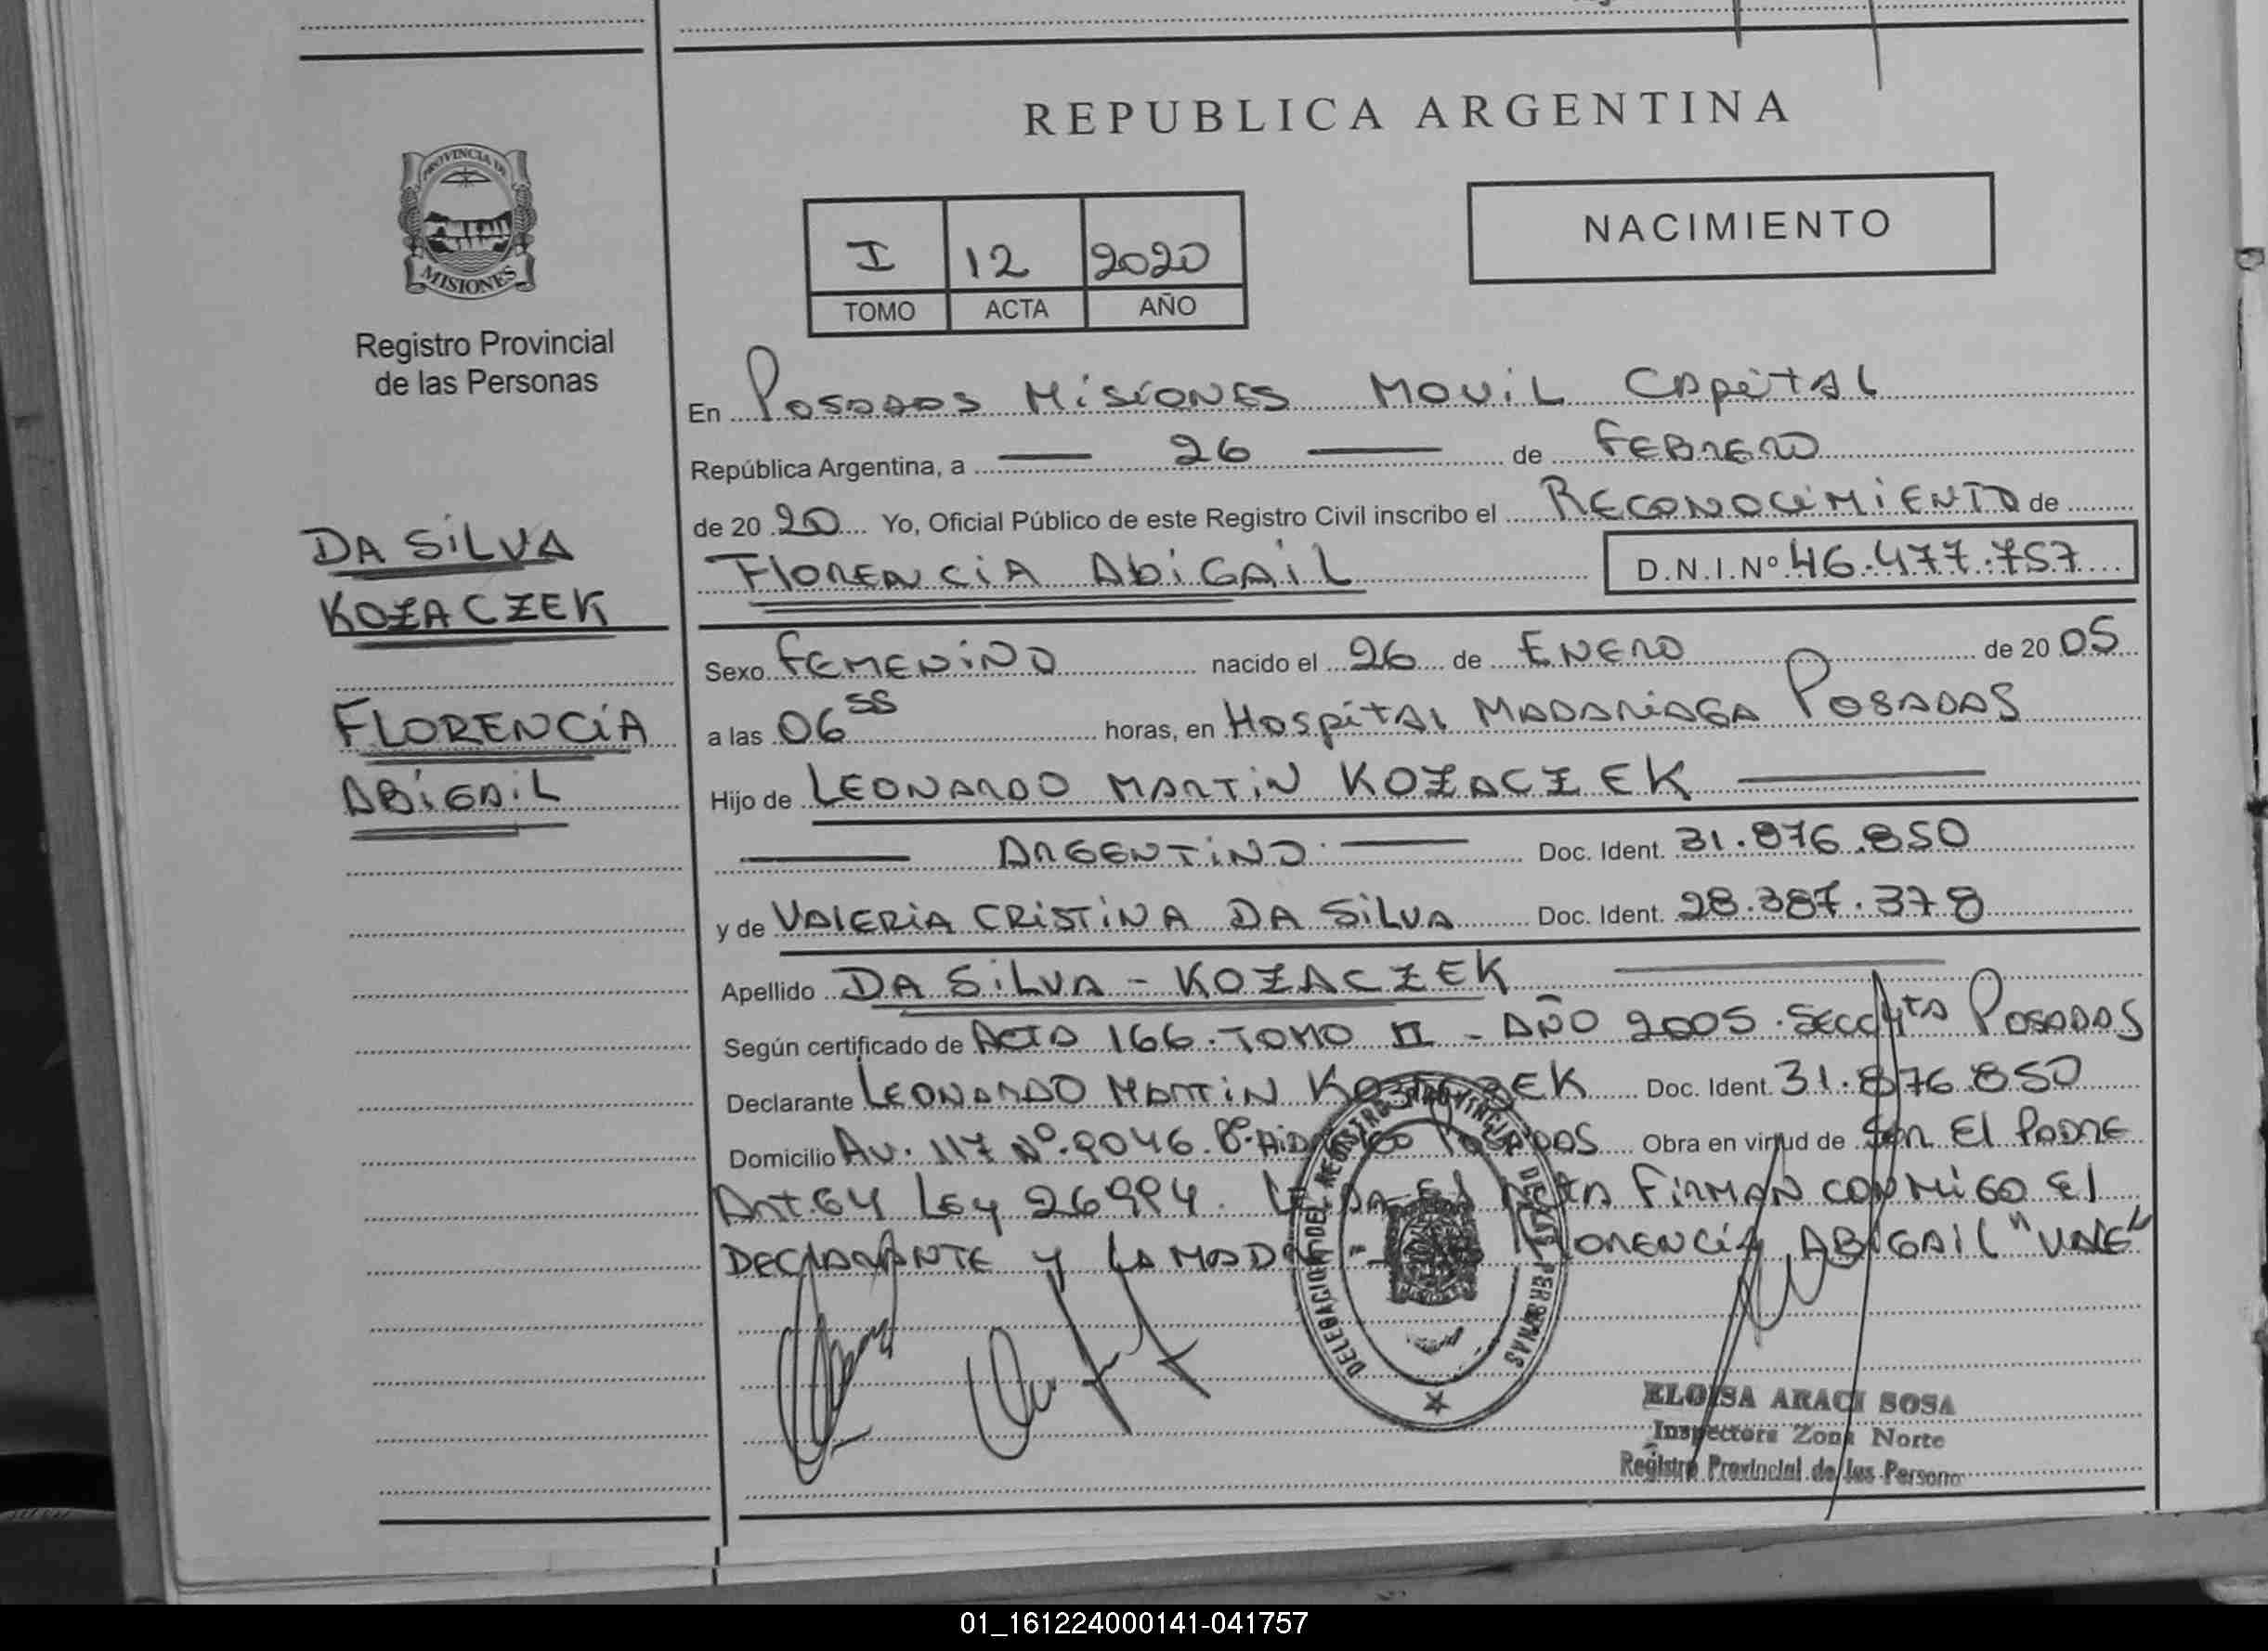 REPUBLICA ARGENTINA
PROVINCIA DE
MISIONES
Registro Provincial
de las Personas
I 12 2020
TOMO ACTA AÑO
NACIMIENTO
DA SILVA
KOZACZEK
FLORENCIA
ABIGAIL
En POSADAS MISIONES MOVIL CAPITAL
República Argentina, a 26 de FEBRERO
de 20 20 Yo, Oficial Público de este Registro Civil inscribo el RECONOCIMIENTO de
FLORENCIA ABIGAIL D.N.I.Nº 46.477.757
Sexo FEMENINO nacido el 26 de ENERO de 20 05
a las 06 55 horas, en HOSPITAL MADARIAGA POSADAS
Hijo de LEONARDO MARTIN KOZACZEK
ARGENTINO Doc. Ident. 31.876.850
y de VALERIA CRISTINA DA SILVA Doc. Ident. 28.387.378
Apellido DA SILVA - KOZACZEK
Según certificado de ACTA 166. TOMO II - AÑO 2005. SECC 4ta POSADAS
Declarante LEONARDO MARTIN KOZACZEK Doc. Ident. 31.876.850
Domicilio AV. 117 Nº 9046. Bº POSADAS Obra en virtud de SER EL PADRE
ART. 64 LEY 26994. LEIDA EL ACTA FIRMAN CONMIGO EL
DECLARANTE Y LA MADRE - FLORENCIA ABIGAIL "VALE"
DELEGACION DEL REGISTRO PROVINCIAL DE LAS PERSONAS
ELOISA ARACI SOSA
Inspectora Zona Norte
Registro Provincial de las Persona
01_161224000141-041757